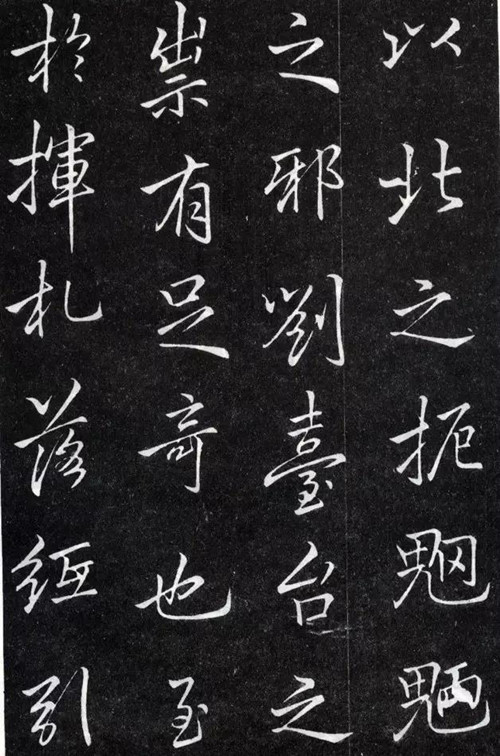 以此之扼魍魎
之邪劉臺台之
祟有足奇也至
於揮札落引